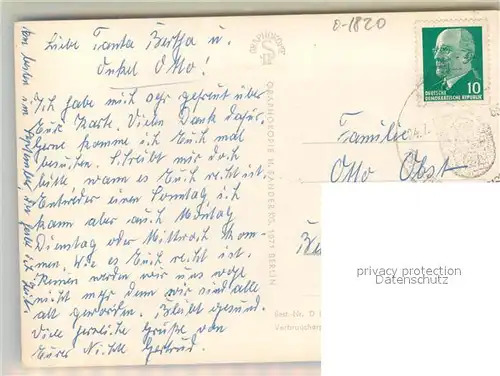 Liebe Tanta Bertha u.
Onkel Otto!
Ich habe mich sehr gefreut über
Eure Karte. Vielen Dank dafür.
Gerne komme ich Euch mal
besuchen. Schreibt mir doch
bitte wann es Euch recht ist.
Entweder einen Sonntag, ich
kann aber auch Montag
Dienstag oder Mittwoch kom-
men. Wie es Euch recht ist.
Kennen werden wir uns wohl
nicht mehr denn wir sind alle
alt geworden. Bleibt gesund.
Viele herzliche Grüße von
Eurer Nichte Gertrud.
September
GRAPHOKOPIE H. SANDER KG, 1971 BERLIN
0-1820
DEUTSCHE
DEMOKRATISCHE REPUBLIK
10
Familie
Otto Obst
Best-Nr. D
privacy protection
Datenschutz